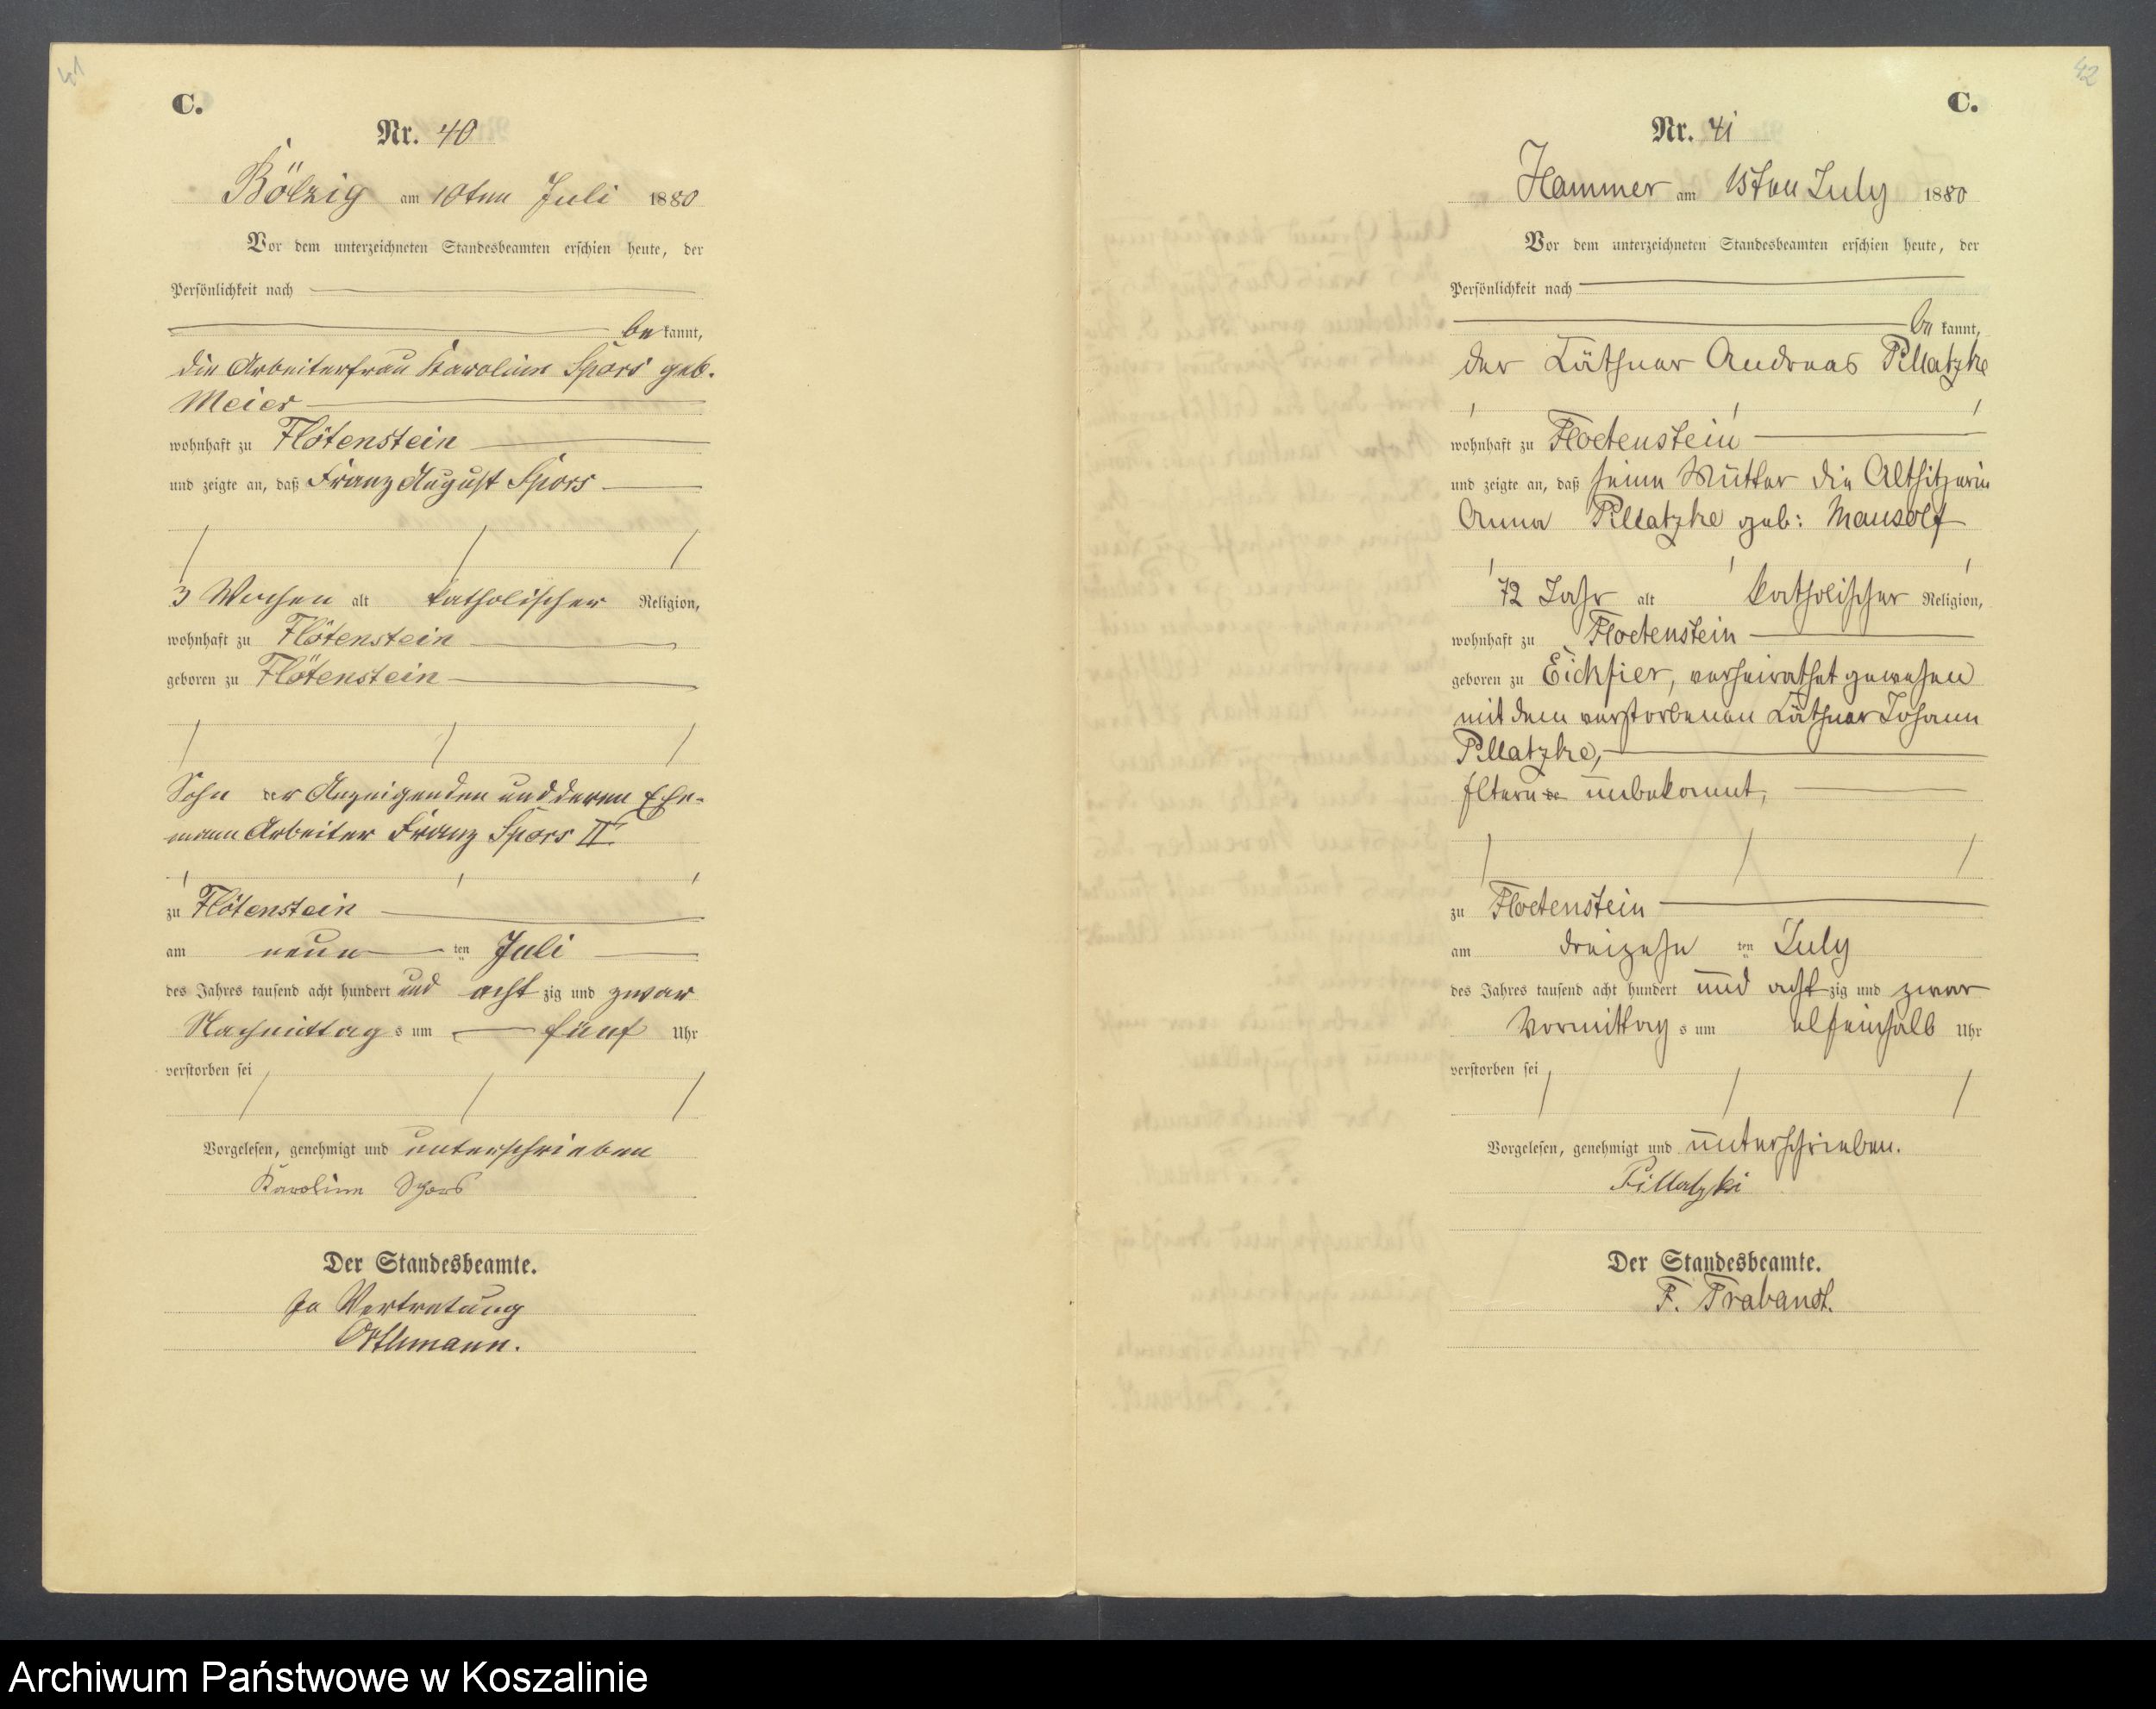 41
C.
Nr. 40
Bölzig am 10ten Juli 1880
Vor dem unterzeichneten Standesbeamten erschien heute, der
Persönlichkeit nach
be kannt,
die Arbeiterfrau Karoline Spors geb.
Meier
wohnhaft zu Flötenstein
und zeigte an, daß Franz August Spors
3 Wochen alt katholischer Religion,
wohnhaft zu Flötenstein
geboren zu Flötenstein
Sohn der Anzeigenden und deren Ehe-
mann Arbeiter Franz Spors II
zu Flötenstein
am neun ten Juli
des Jahres tausend acht hundert und acht zig und zwar
Nachmittag s um fünf Uhr
verstorben sei
Vorgelesen, genehmigt und unterschrieben
Karoline Spors
Der Standesbeamte.
In Vertretung
Orthmann.
42
C.
Nr. 41
Hammer am 15ten July 1880
Vor dem unterzeichneten Standesbeamten erschien heute, der
Persönlichkeit nach
be kannt,
der Käthner Andreas Pillatzke
wohnhaft zu Floetenstein
und zeigte an, daß seine Mutter die Altsitzerin
Anna Pillatzke geb: Mausolf
72 Jahr alt katholischer Religion,
wohnhaft zu Floetenstein
geboren zu Eichfier, verheirathet gewesen
mit dem verstorbenen Käthner Johann
Pillatzke,
Eltern unbekannt,
zu Floetenstein
am dreizehn ten July
des Jahres tausend acht hundert und acht zig und zwar
Vormittag s um elfeinhalb Uhr
verstorben sei
Vorgelesen, genehmigt und unterschrieben.
Pillatzki
Der Standesbeamte.
F. Trabandt.
Archiwum Państwowe w Koszalinie